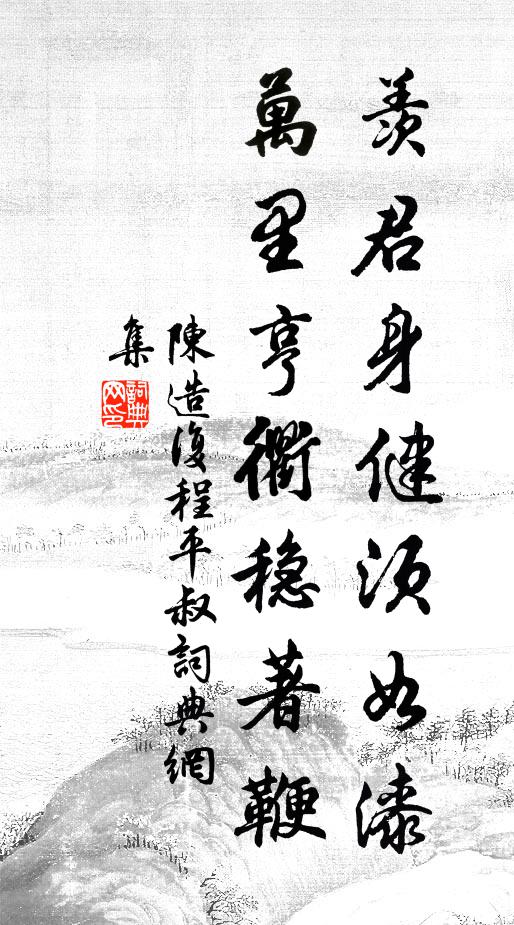 羨君身健須如漆
萬里亨衢穩著鞭
陳造復程平叔詞典網
集
詞典網印